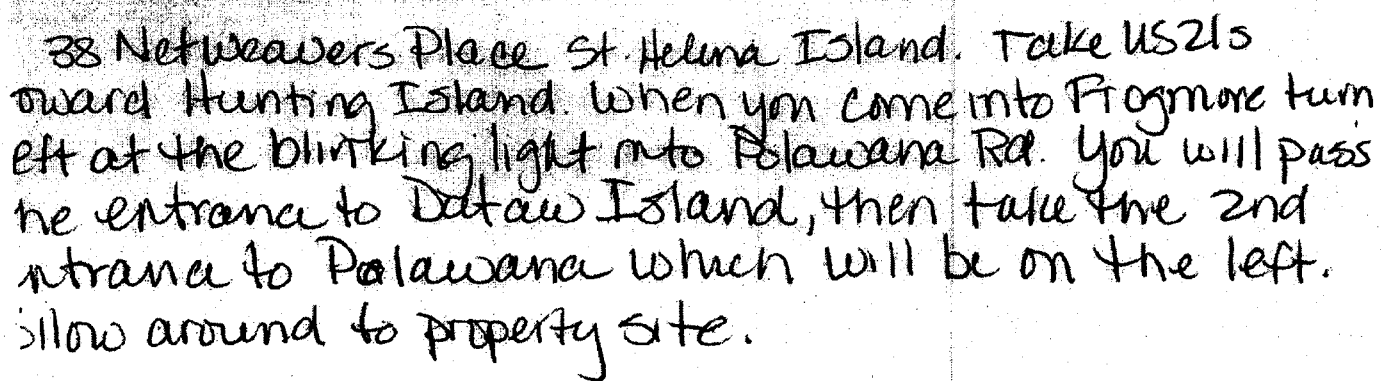 38 Netweavers Place St. Helena Island. Take US21s
oward Hunting Island. When you come into Frogmore turn
eft at the blinking light onto Polawana Rd. You will pass
he entrance to Dataw Island, then take the 2nd
ntrance to Polawana which will be on the left.
ollow around to property site.